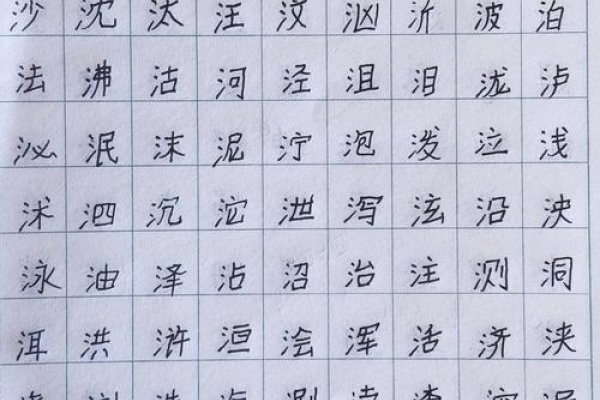 沙沈汰汪汶汹沂波泊
法沸沽河泾沮泪泷泸
泌泯沫泥泞泡泼泣浅
沭泗沉沱泄泻泫沿泱
泳油泽沾沼治注测洞
洱洪浒洹浍浑活济浃